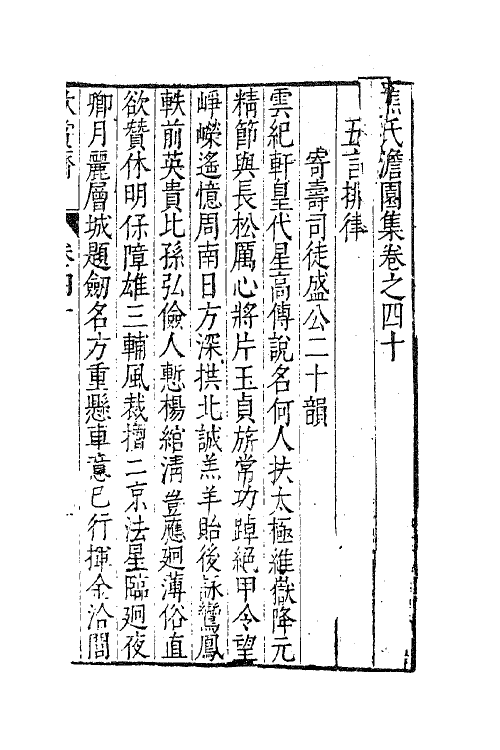 焦氏澹園集卷之四十
五言排律
寄壽司徒盛公二十韻
雲紀軒皇代星高傅說名何人扶太極維嶽降元
精節與長松厲心將片玉貞旂常功踔絕甲令望
崢嶸遙憶周南日方深拱北誠羔羊貽後詠鸞鳳
軼前英貴比孫弘儉人慙楊綰淸豈應廻薄俗直
欲贊休明保障雄三輔風裁擅二京法星臨廻夜
卿月麗層城題劒名方重懸車意已行揮金洽閭
欣賞齋 卷四十 一